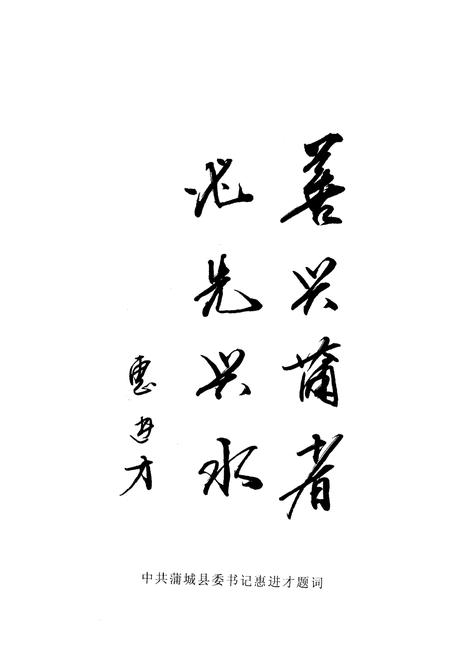 善兴蒲者
必先兴水
惠进才
中共蒲城县委书记惠进才题词